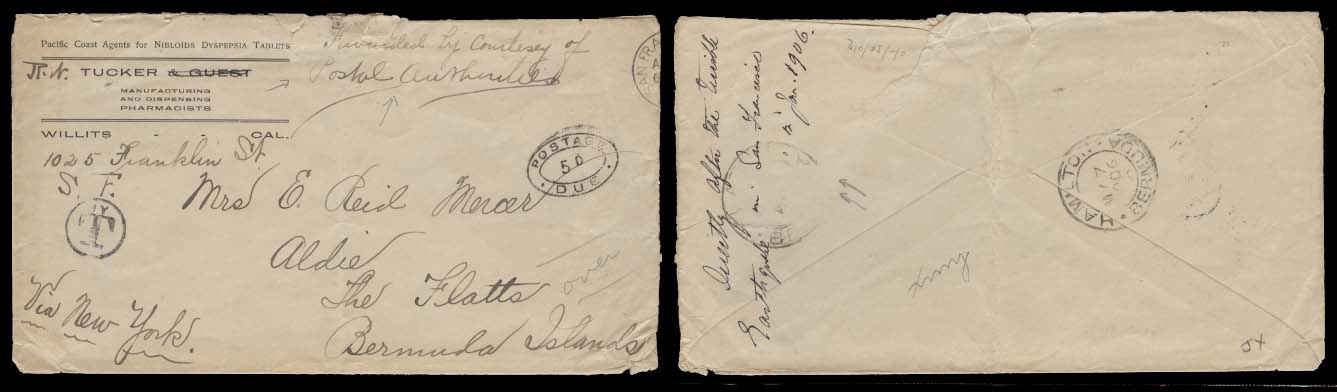 Pacific Coast Agents for NIBLOIDS DYSPEPSIA TABLETS
TUCKER & GUEST
MANUFACTURING
AND DISPENSING
PHARMACISTS
WILLITS - - CAL.
Forwarded by Courtesey of
Postal Authorities
SAN FRA
1025 Franklin St
S. F.
POSTAGE
5D
DUE
T
Mrs E. Reid Mercer
Aldie
The Flatts
Bermuda Islands
over
Via New York.
Directly after the terrible
Earthquake in San Francisco
in Jan. 1906.
HAMILTON
BERMUDA